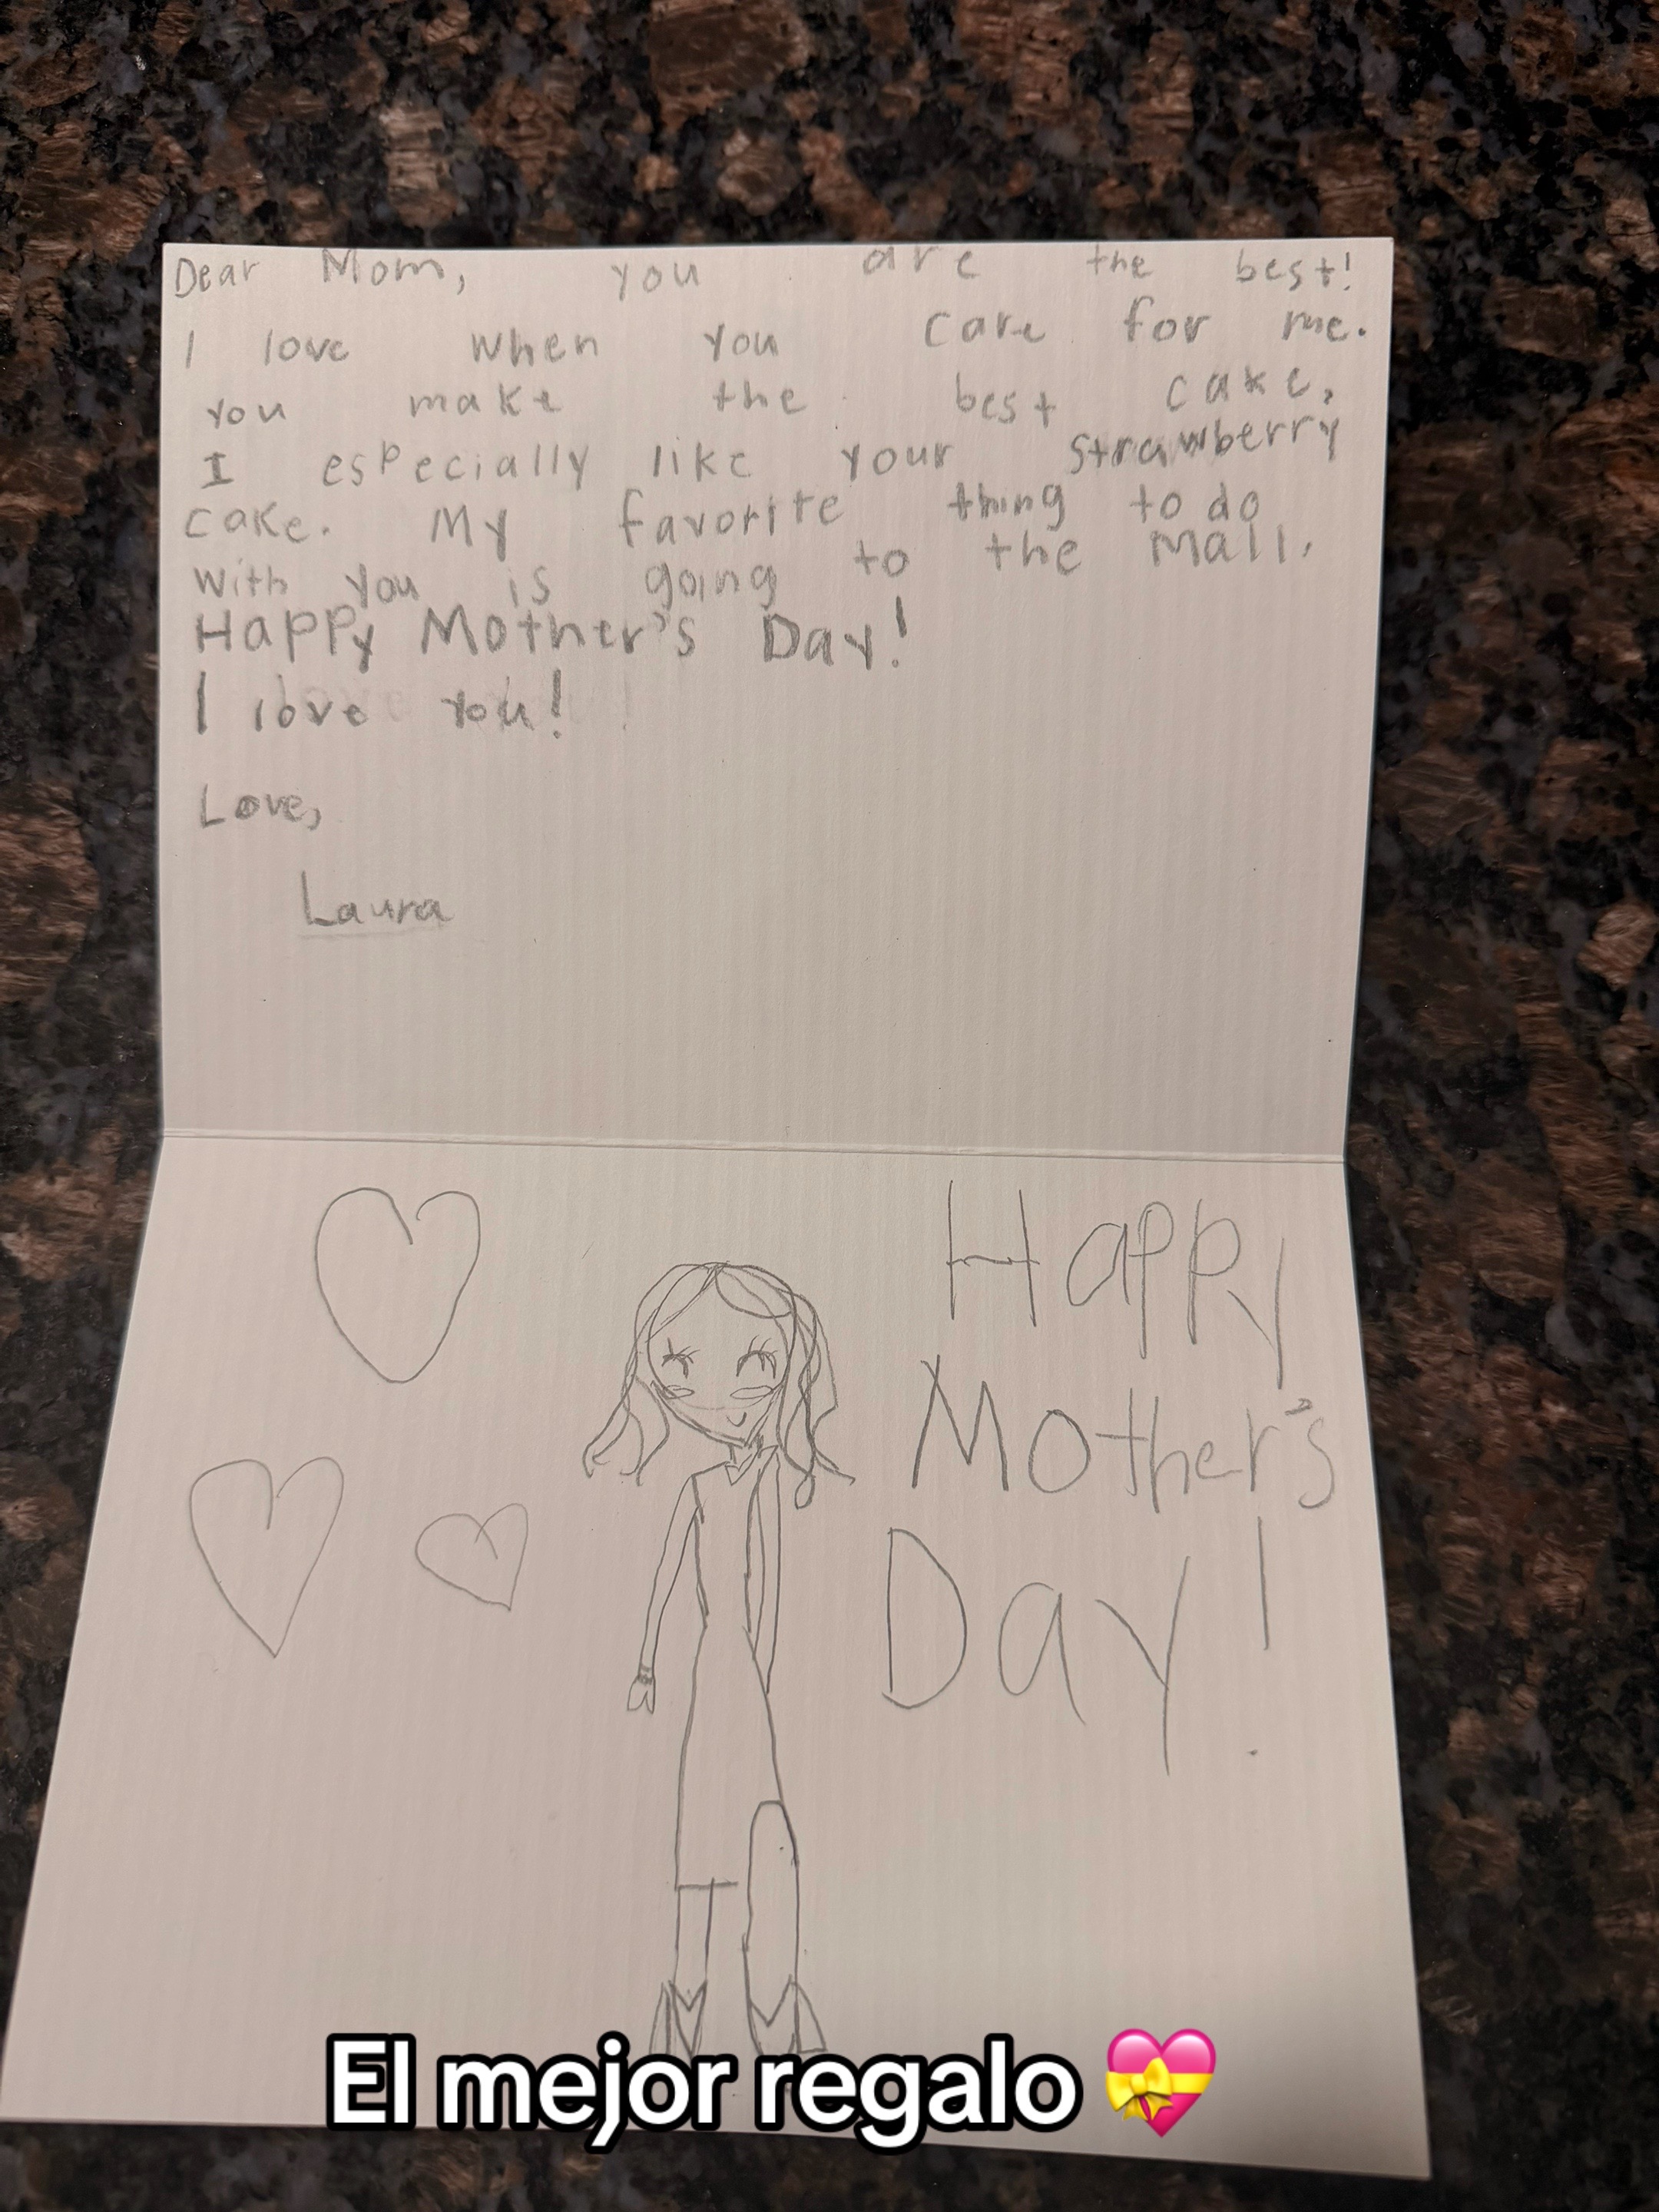 Dear Mom, you are the best!
I love when you care for me.
You make the best cake,
I especially like your strawberry
cake. My favorite thing to do
with you is going to the Mall.
Happy Mother's Day!
I love you!
Love,
Laura
Happy
Mother's
Day!
El mejor regalo 💝